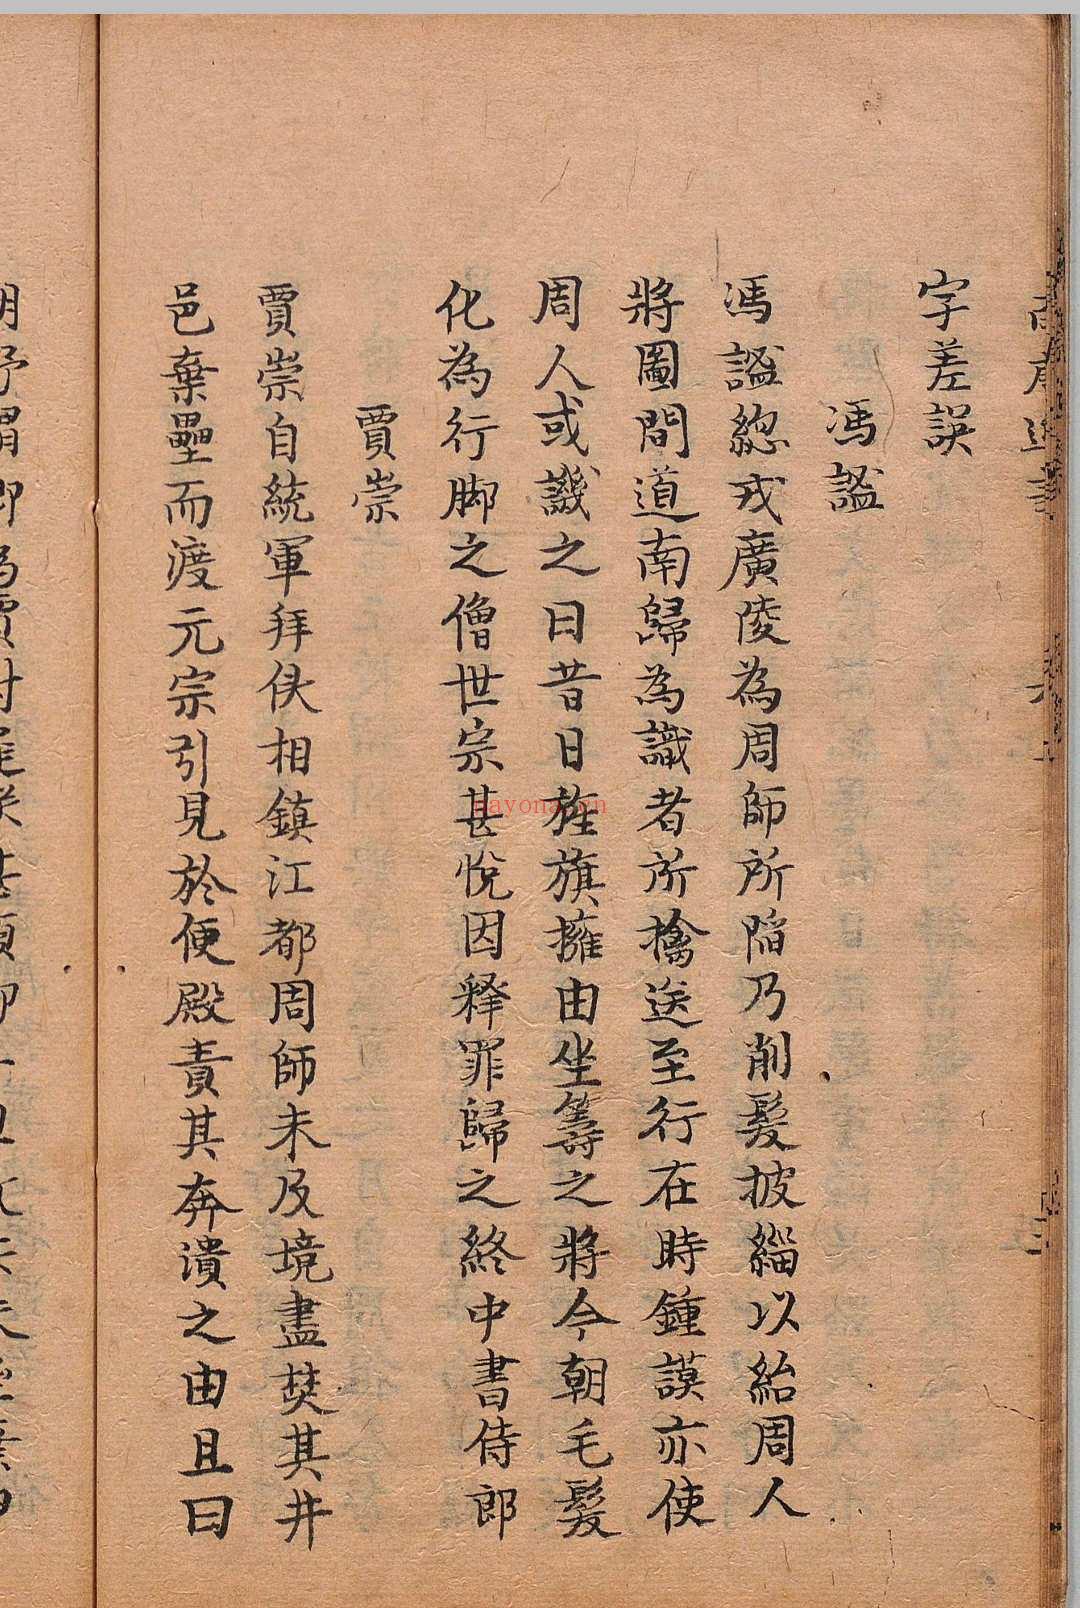 字差誤
馮謐
馮謐總戎廣陵為周師所陷乃削髮披緇以紿周人
將圖間道南歸為識者所擒送至行在時鍾謨亦使
周人或譏之曰昔日旌旗擁由坐籌之將今朝毛髮
化為行脚之僧世宗甚悅因释罪歸之終中書侍郎
賈崇
賈崇自統軍拜侠相鎮江都周師未及境盡焚其井
邑棄壘而渡元宗引見於便殿責其奔潰之由且曰
nayona.cn